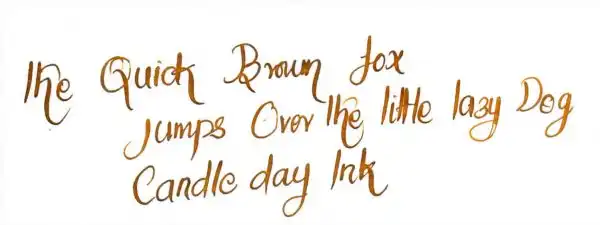 The Quick Brown fox
Jumps Over The little lazy Dog
Candle day Ink